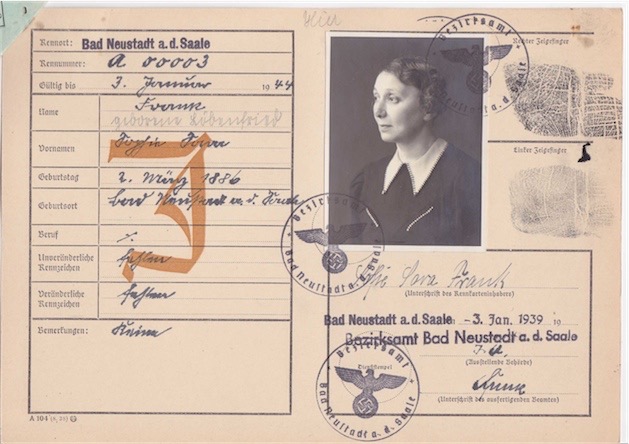 Kennort: Bad Neustadt a.d. Saale
Kennnummer: A 00003
Gültig bis 3. Januar 1944
Name Frank
geborene
Vornamen Sophie Sara
Geburtstag 2. März 1886
Geburtsort Bad Neustadt a. d. Saale
Beruf
Unveränderliche Kennzeichen fehlen
Veränderliche Kennzeichen fehlen
Bemerkungen: Keine
A 104
J
Bezirksamt
Neustadt a. d. Saale
Rechter Zeigefinger
Linker Zeigefinger
Bezirksamt
Bad Neustadt a.d. Saale
Sara Frank
(Unterschrift des Kennkarteninhabers)
Bad Neustadt a.d. Saale -3. Jan. 1939 19
Bezirksamt Bad Neustadt a.d. Saale
(Ausstellende Behörde)
Dienststempel
(Unterschrift des ausfertigenden Beamten)
Bezirksamt
Bad Neustadt a.d. Saale